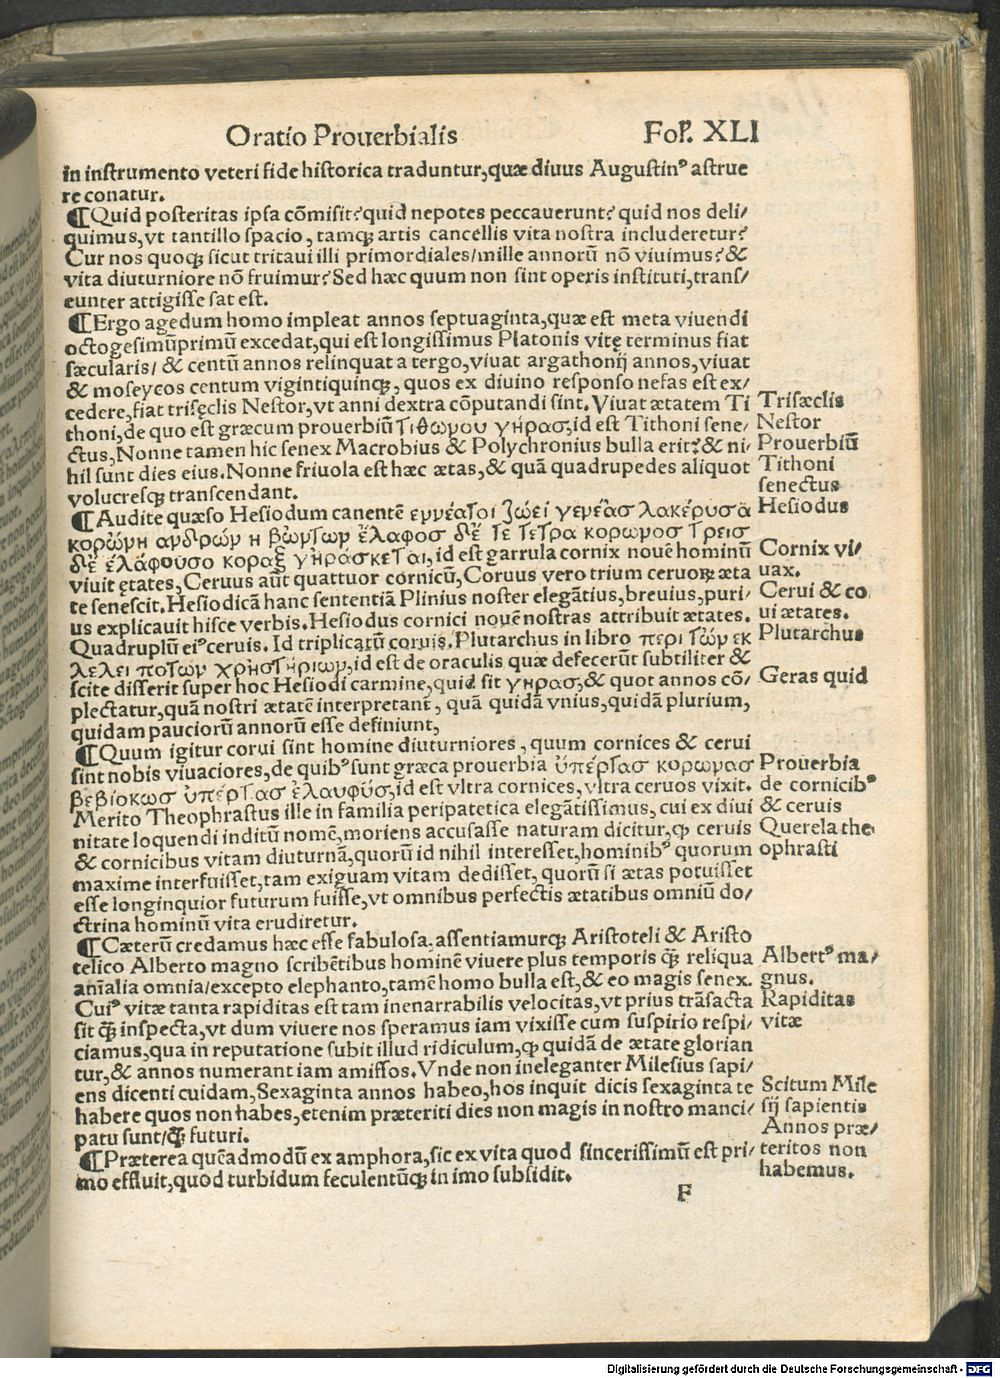 Oratio Prouerbialis Fol. XLI
in instrumento veteri fide historica traduntur,quæ diuus Augustinꝰ astrue
re conatur.
¶Quid posteritas ipsa cōmisit?quid nepotes peccauerunt?quid nos deli/
quimus,vt tantillo spacio, tamqꝫ artis cancellis vita nostra includeretur?
Cur nos quoqꝫ sicut tritaui illi primordiales/mille annorū nō viuimus?&
vita diuturniore nō fruimur?Sed hæc quum non sint operis instituti,trans/
eunter attigisse sat est.
¶Ergo agedum homo impleat annos septuaginta,quæ est meta viuendi
octogesimūprimū excedat,qui est longissimus Platonis vitę terminus fiat
sæcularis/ & centū annos relinquat a tergo,viuat argathonij annos,viuat
& moseycos centum vigintiquinqꝫ, quos ex diuino responso nefas est ex/
cedere,fiat trisęclis Nestor,vt anni dextra cōputandi sint.Viuat ætatem Ti
thoni,de quo est græcum prouerbiū τιθωμου γήρασ;id est Tithoni sene/
ctus,Nonne tamen hic senex Macrobius & Polychronius bulla erit?& ni/
hil sunt dies eius.Nonne friuola est hæc ætas,& quā quadrupedes aliquot
volucresqꝫ transcendant.
¶Audite quæso Hesiodum canentē εννέατοι ζώει γενέασ λακέρυσα
κορώνη ανδρών η βώντων έλαφοσ δέ τε τετρα κορωνοσ τρεισ
δέ έλάφουσο κοραξ γηράσκεται,id est garrula cornix nouē hominū
viuit ętates, Ceruus aūt quattuor cornicū,Coruus vero trium ceruoꝝ æta
te senescit.Hesiodicā hanc sententiā Plinius noster elegātius,breuius,puri/
us explicauit hisce verbis.Hesiodus cornici nouē nostras attribuit ætates.
Quadruplū eiꝰ ceruis. Id triplicatū coruis.Plutarchus in libro περι τών εκ
λελει ποτων χρηστηριων,id est de oraculis quæ defecerūt subtiliter &
scite disserit super hoc Hesiodi carmine,quid sit γηρασ;& quot annos cō/
plectatur,quā nostri ætatē interpretant, quā quidā vnius,quidā plurium,
quidam pauciorū annorū esse definiunt,
¶Quum igitur corui sint homine diuturniores, quum cornices & cerui
sint nobis viuaciores,de quibꝰ sunt græca prouerbia ὑπέρτασ κορωνασ
βεβίοκωσ ὑπέρτασ έλαυφύσ,id est vltra cornices,vltra ceruos vixit.
Merito Theophrastus ille in familia peripatetica elegātissimus, cui ex diui
nitate loquendi inditū nomē,moriens accusasse naturam dicitur,ꝙ ceruis
& cornicibus vitam diuturnā,quorū id nihil interesset,hominibꝰ quorum
maxime interfuisset,tam exiguam vitam dedisset, quorū si ætas potuisset
esse longinquior futurum fuisse,vt omnibus perfectis ætatibus omniū do/
ctrina hominū vita erudiretur.
¶Cæterū credamus hæc esse fabulosa.assentiamurqꝫ Aristoteli & Aristo
telico Alberto magno scribētibus hominē viuere plus temporis q̄ꝫ reliqua
anīalia omnia/excepto elephanto,tamē homo bulla est,& eo magis senex.
Cuiꝰ vitæ tanta rapiditas est tam inenarrabilis velocitas,vt prius trāsacta
sit q̄ꝫ inspecta,vt dum viuere nos speramus iam vixisse cum suspirio respi/
ciamus,qua in reputatione subit illud ridiculum,ꝙ quidā de ætate glorian
tur,& annos numerant iam amissos.Vnde non ineleganter Milesius sapi/
ens dicenti cuidam,Sexaginta annos habeo,hos inquit dicis sexaginta te
habere quos non habes,etenim præteriti dies non magis in nostro manci/
patu sunt/q̄ꝫ futuri.
¶Præterea quēadmodū ex amphora,sic ex vita quod sincerissimū est pri/
mo effluit,quod turbidum feculentūqꝫ in imo subsidit.
F
Trisæclis
Nestor
Prouerbiū
Tithoni
senectus
Hesiodus
Cornix vi/
uax.
Cerui & co
ui ætates.
Plutarchus
Geras quid
Prouerbia
de cornicibꝰ
& ceruis
Querela the
ophrasti
Albertꝰ ma/
gnus.
Rapiditas
vitæ
Scitum Mile
sij sapientis
Annos præ/
teritos non
habemus.
Digitalisierung gefördert durch die Deutsche Forschungsgemeinschaft - DFG